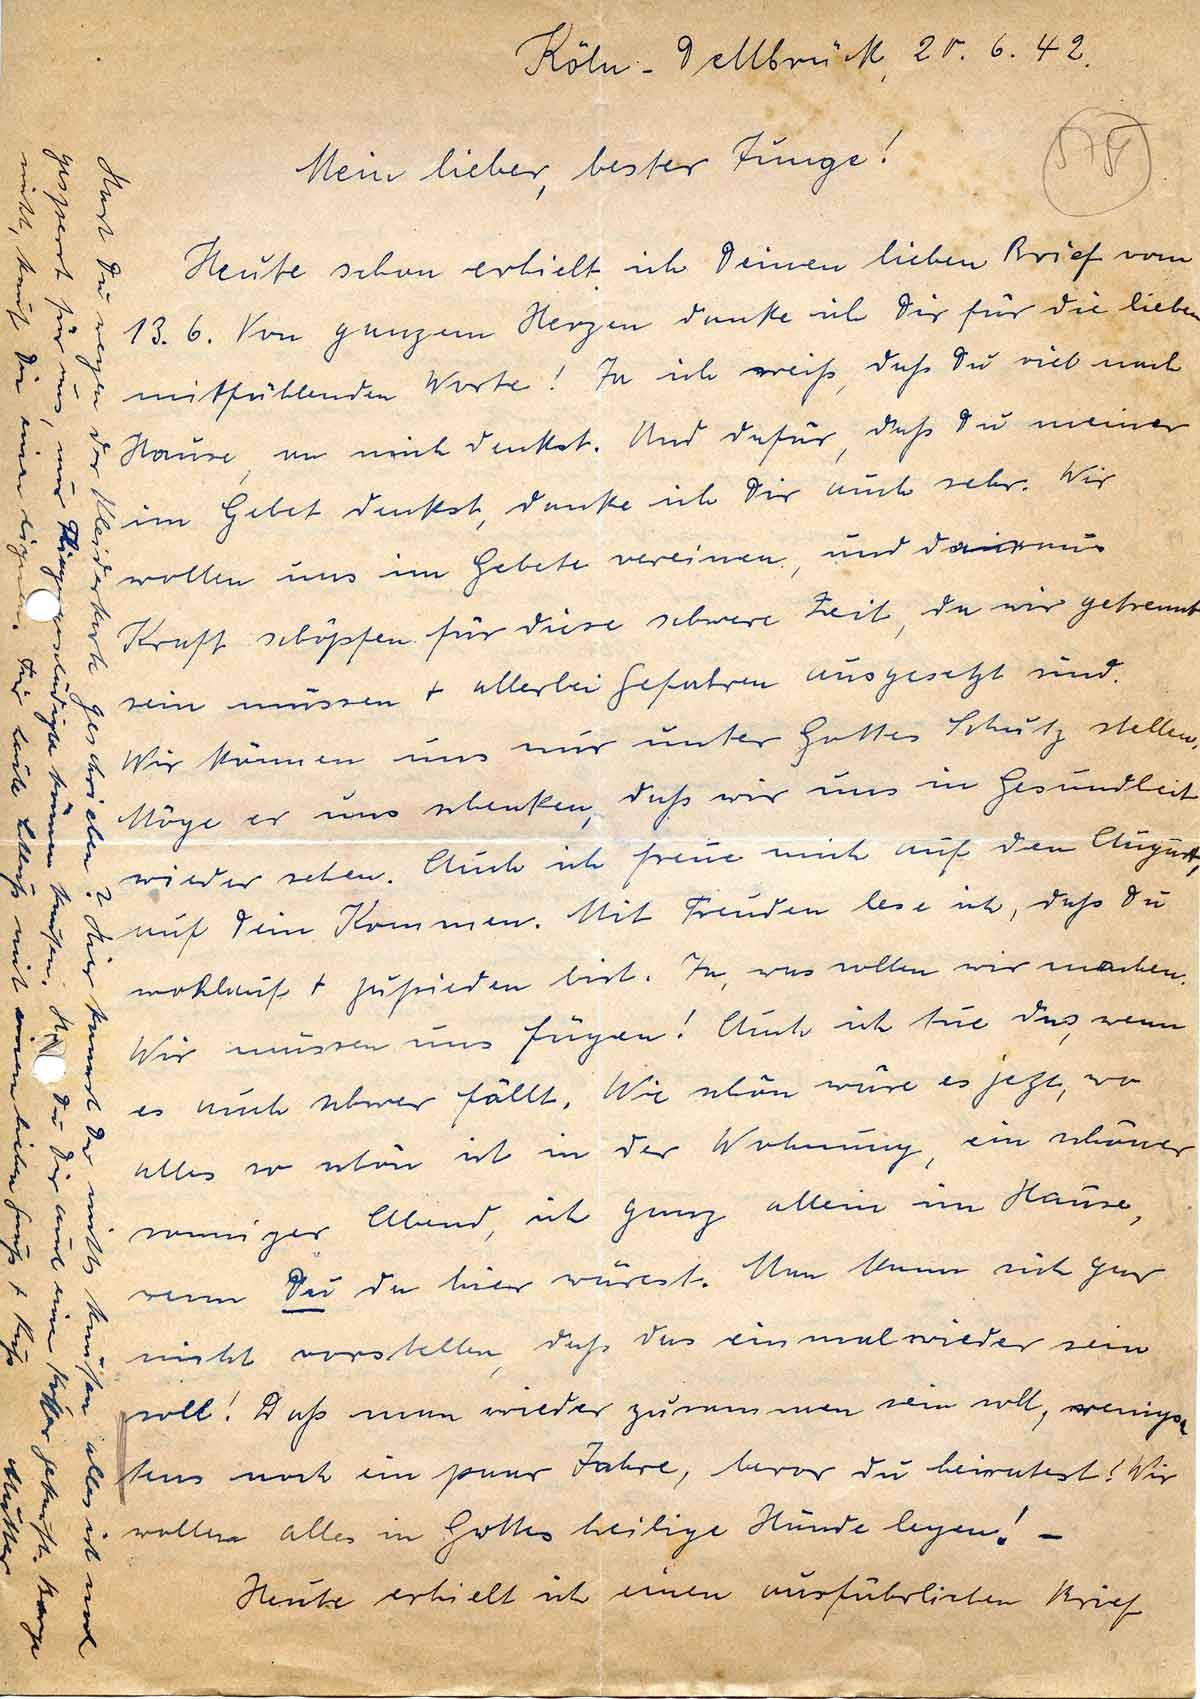 Köln-Dellbrück, 20. 6. 42.
Mein lieber, bester Junge!
Heute schon erhielt ich Deinen lieben Brief vom
13. 6. Von ganzem Herzen danke ich Dir für die lieben
mitfühlenden Worte! Ja ich weiß, daß Du viel nach
Hause, an mich denkst. Und dafür, daß Du meiner
im Gebet denkst, danke ich Dir auch sehr. Wir
wollen uns im Gebete vereinen, und daraus
Kraft schöpfen für diese schwere Zeit, da wir getrennt
sein müssen + allerlei Gefahren ausgesetzt sind.
Wir können uns nur unter Gottes Schutz stellen.
Möge er uns schenken, daß wir uns in Gesundheit
wieder sehen. Auch ich freue mich auf den August,
auf Dein Kommen. Mit Freuden lese ich, daß Du
wohlauf + zufrieden bist. Ja, was sollen wir machen.
Wir müssen uns fügen! Auch ich tue das, wenn
es auch schwer fällt. Wie schön wäre es jetzt, wo
alles so schön ist in der Wohnung, ein schöner
sonniger Abend, ich ganz allein im Hause,
wenn Du da hier wärest. Man kann sich gar
nicht vorstellen, daß das einmal wieder sein
soll! Daß man wieder zusammen sein soll, wenigs
tens noch ein paar Jahre, bevor du heiratest! Wir
wollen alles in Gottes heilige Hände legen! –
Heute erhielt ich einen ausführlichen Brief
Hast Du wegen der Kleiderkarte geschrieben? Hier kannst Du nichts kaufen alles ist noch
gesperrt für uns, nur Fliegergeschädigte können kaufen. Du Dir auch eine gekauft. Borge
nicht, kauf Dir einen eigenen. Für heute Schluß mit einem lieben Gruß + Kuß Mutter